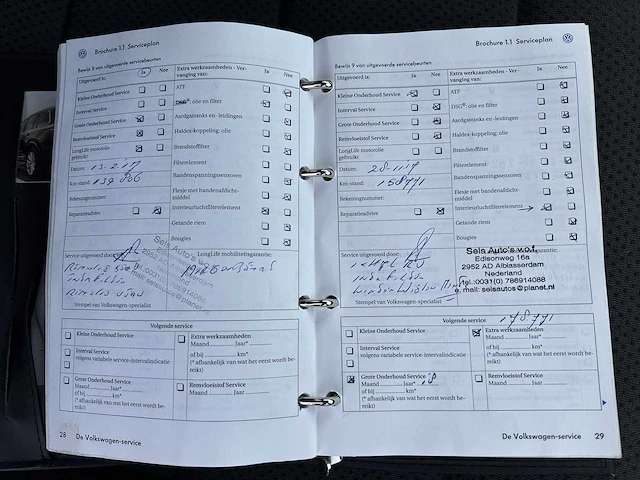 Brochure 1.1 Serviceplan
Bewijs 8 van uitgevoerde servicebeurten
Uitgevoerd is:
Ja
Nee
Extra werkzaamheden - Ver-
vanging van:
Ja
Nee
Kleine Onderhoud Service
Interval Service
Grote Onderhoud Service
Remvloeistof Service
LongLife motorolie
gebruikt
Datum: 13-2-17
Km-stand: 139 806
Rekeningnummer:
Reparatieadvies
ATF
DSG®: olie en filter
Aardgastanks en -leidingen
Haldex-koppeling: olie
Brandstoffilter
Filterelement
Bandenspanningssensoren
Flesje met bandenafdicht-
middel
Interieurluchtfilterelement
Getande riem
Bougies
Service uitgevoerd door:
LongLife mobiliteitsgarantie:
Sels Auto's v.o.f.
Edisonweg 16a
2952 AD Alblasserdam
Nederland
tel.:0031(0) 786914088
e.mail: selsautos@planet.nl
Stempel van Volkswagen-specialist
Volgende service
Kleine Onderhoud Service
Interval Service
volgens variabele service-intervalindicatie
Grote Onderhoud Service
Maand Jaar
(* afhankelijk van wat het eerst wordt be-
reikt)
Extra werkzaamheden
Maand Jaar *
of bij km*
(* afhankelijk van wat het eerst wordt be-
reikt)
Remvloeistof Service
Maand Jaar
28 De Volkswagen-service
Brochure 1.1 Serviceplan
Bewijs 9 van uitgevoerde servicebeurten
Uitgevoerd is:
Ja
Nee
Extra werkzaamheden - Ver-
vanging van:
Ja
Nee
Kleine Onderhoud Service
Interval Service
Grote Onderhoud Service
Remvloeistof Service
LongLife motorolie
gebruikt
Datum: 28-11-17
Km-stand: 158771
Rekeningnummer:
Reparatieadvies
ATF
DSG®: olie en filter
Aardgastanks en -leidingen
Haldex-koppeling: olie
Brandstoffilter
Filterelement
Bandenspanningssensoren
Flesje met bandenafdicht-
middel
Interieurluchtfilterelement
Getande riem
Bougies
Service uitgevoerd door:
Sels Auto's v.o.f.
Edisonweg 16a
2952 AD Alblasserdam
Nederland
tel.:0031(0) 786914088
e.mail: selsautos@planet.nl
Stempel van Volkswagen-specialist
Volgende service 178771
Kleine Onderhoud Service
Interval Service
volgens variabele service-intervalindicatie
Grote Onderhoud Service
Maand Jaar 18
of bij km*
(* afhankelijk van wat het eerst wordt be-
reikt)
Extra werkzaamheden
of bij km*
(* afhankelijk van wat het eerst wordt be-
reikt)
Remvloeistof Service
Maand Jaar
De Volkswagen-service 29